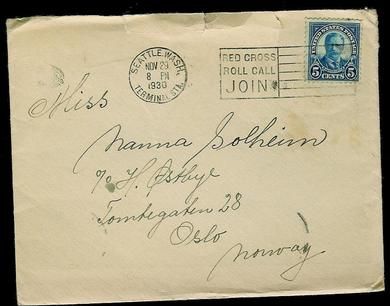 SEATTLE, WASH.
NOV 29
8 PM
1930
TERMINAL STA.
RED CROSS
ROLL CALL
JOIN!
UNITED STATES POSTAGE
5 CENTS 5
Miss
Nanna Solheim
c/o H. Østbye
Tomtegaten 28
Oslo
Norway